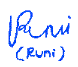 Runi
(RUNI)